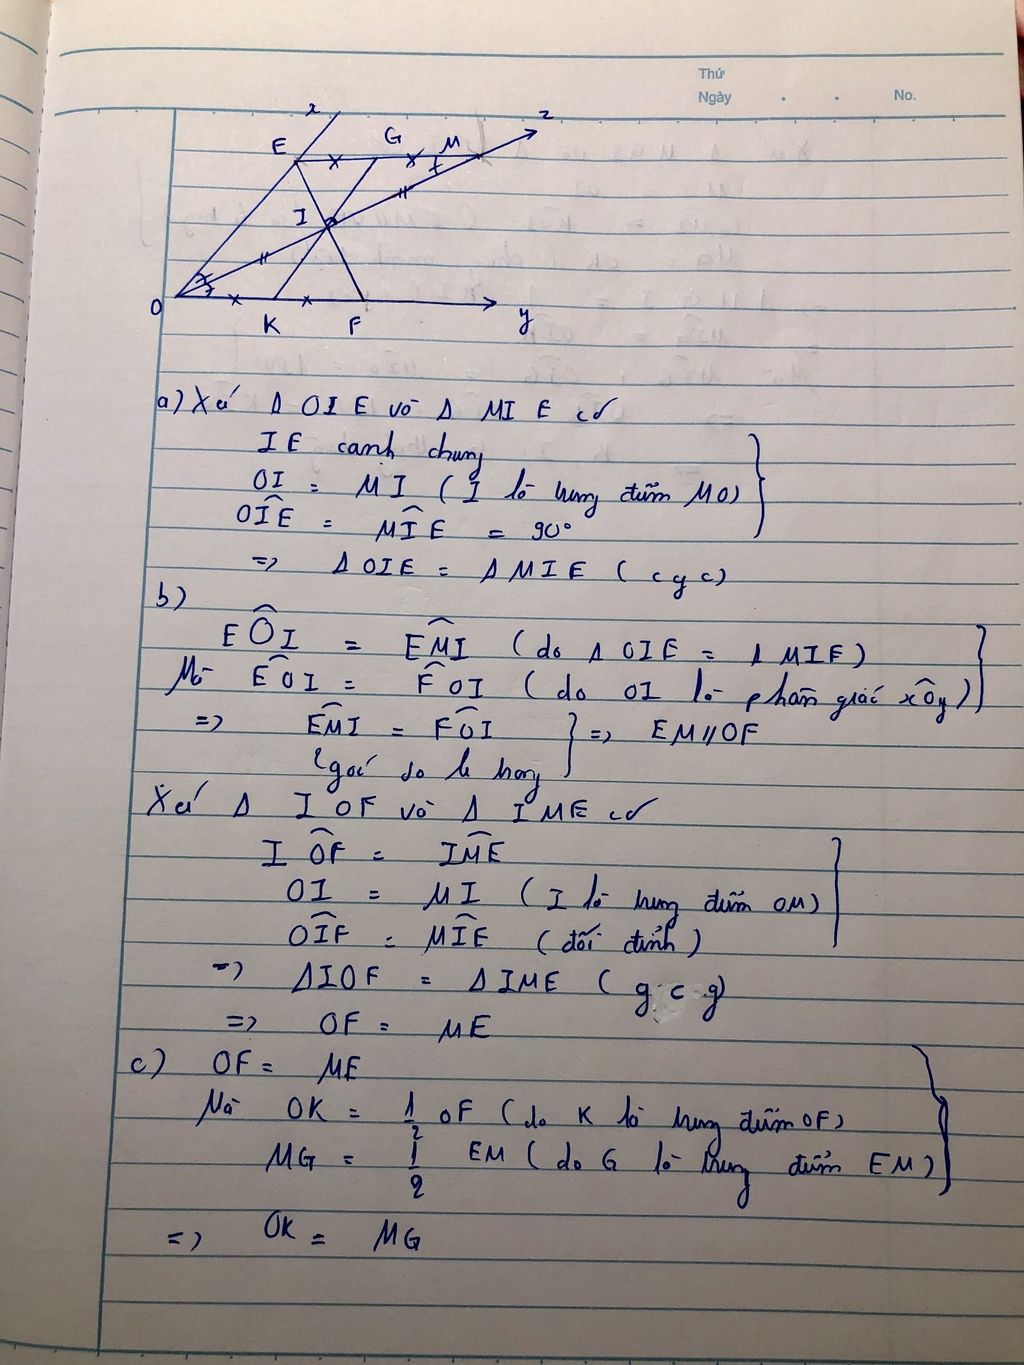 Thứ
Ngày . . No.
x z
E G M
I
O K F y
a) Xét Δ OIE và Δ MIE có
IE cạnh chung
OI = MI ( I là trung điểm MO)
OIE = MIE = 90°
=> Δ OIE = Δ MIE ( c g c)
b)
EOI = EMI ( do Δ OIE = Δ MIE)
Mà EOI = FOI ( do OI là phân giác xOy)
=> EMI = FOI => EM // OF
(góc so le trong
Xét Δ IOF và Δ IME có
IOF = IME
OI = MI ( I là trung điểm OM)
OIF = MIE (đối đỉnh)
=> ΔIOF = ΔIME ( g c g)
=> OF = ME
c) OF = ME
Mà OK = 1/2 OF (do K là trung điểm OF)
MG = 1/2 EM ( do G là trung điểm EM)
=> OK = MG